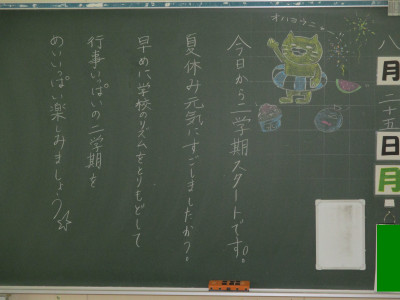 八月二十五日
月
オハヨウニャー
今日から二学期スタートです。
夏休み元気にすごしましたか?
早めに学校のリズムをとりもどして
行事いっぱいの二学期を
めいいっぱい楽しみましょう☆